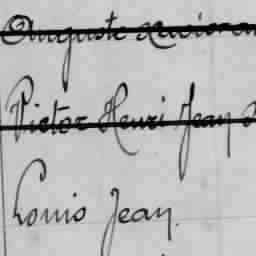 Auguste
Victor Henri Jean
Louis Jean.